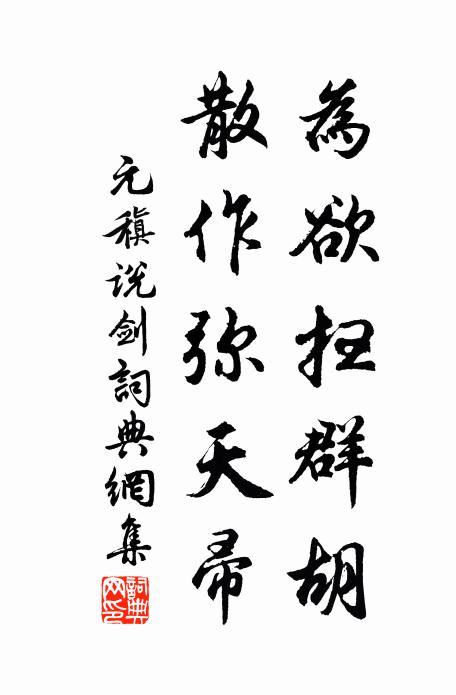 為欲扫群胡
散作弥天帚
元稹说剑詞典網集
詞典網印